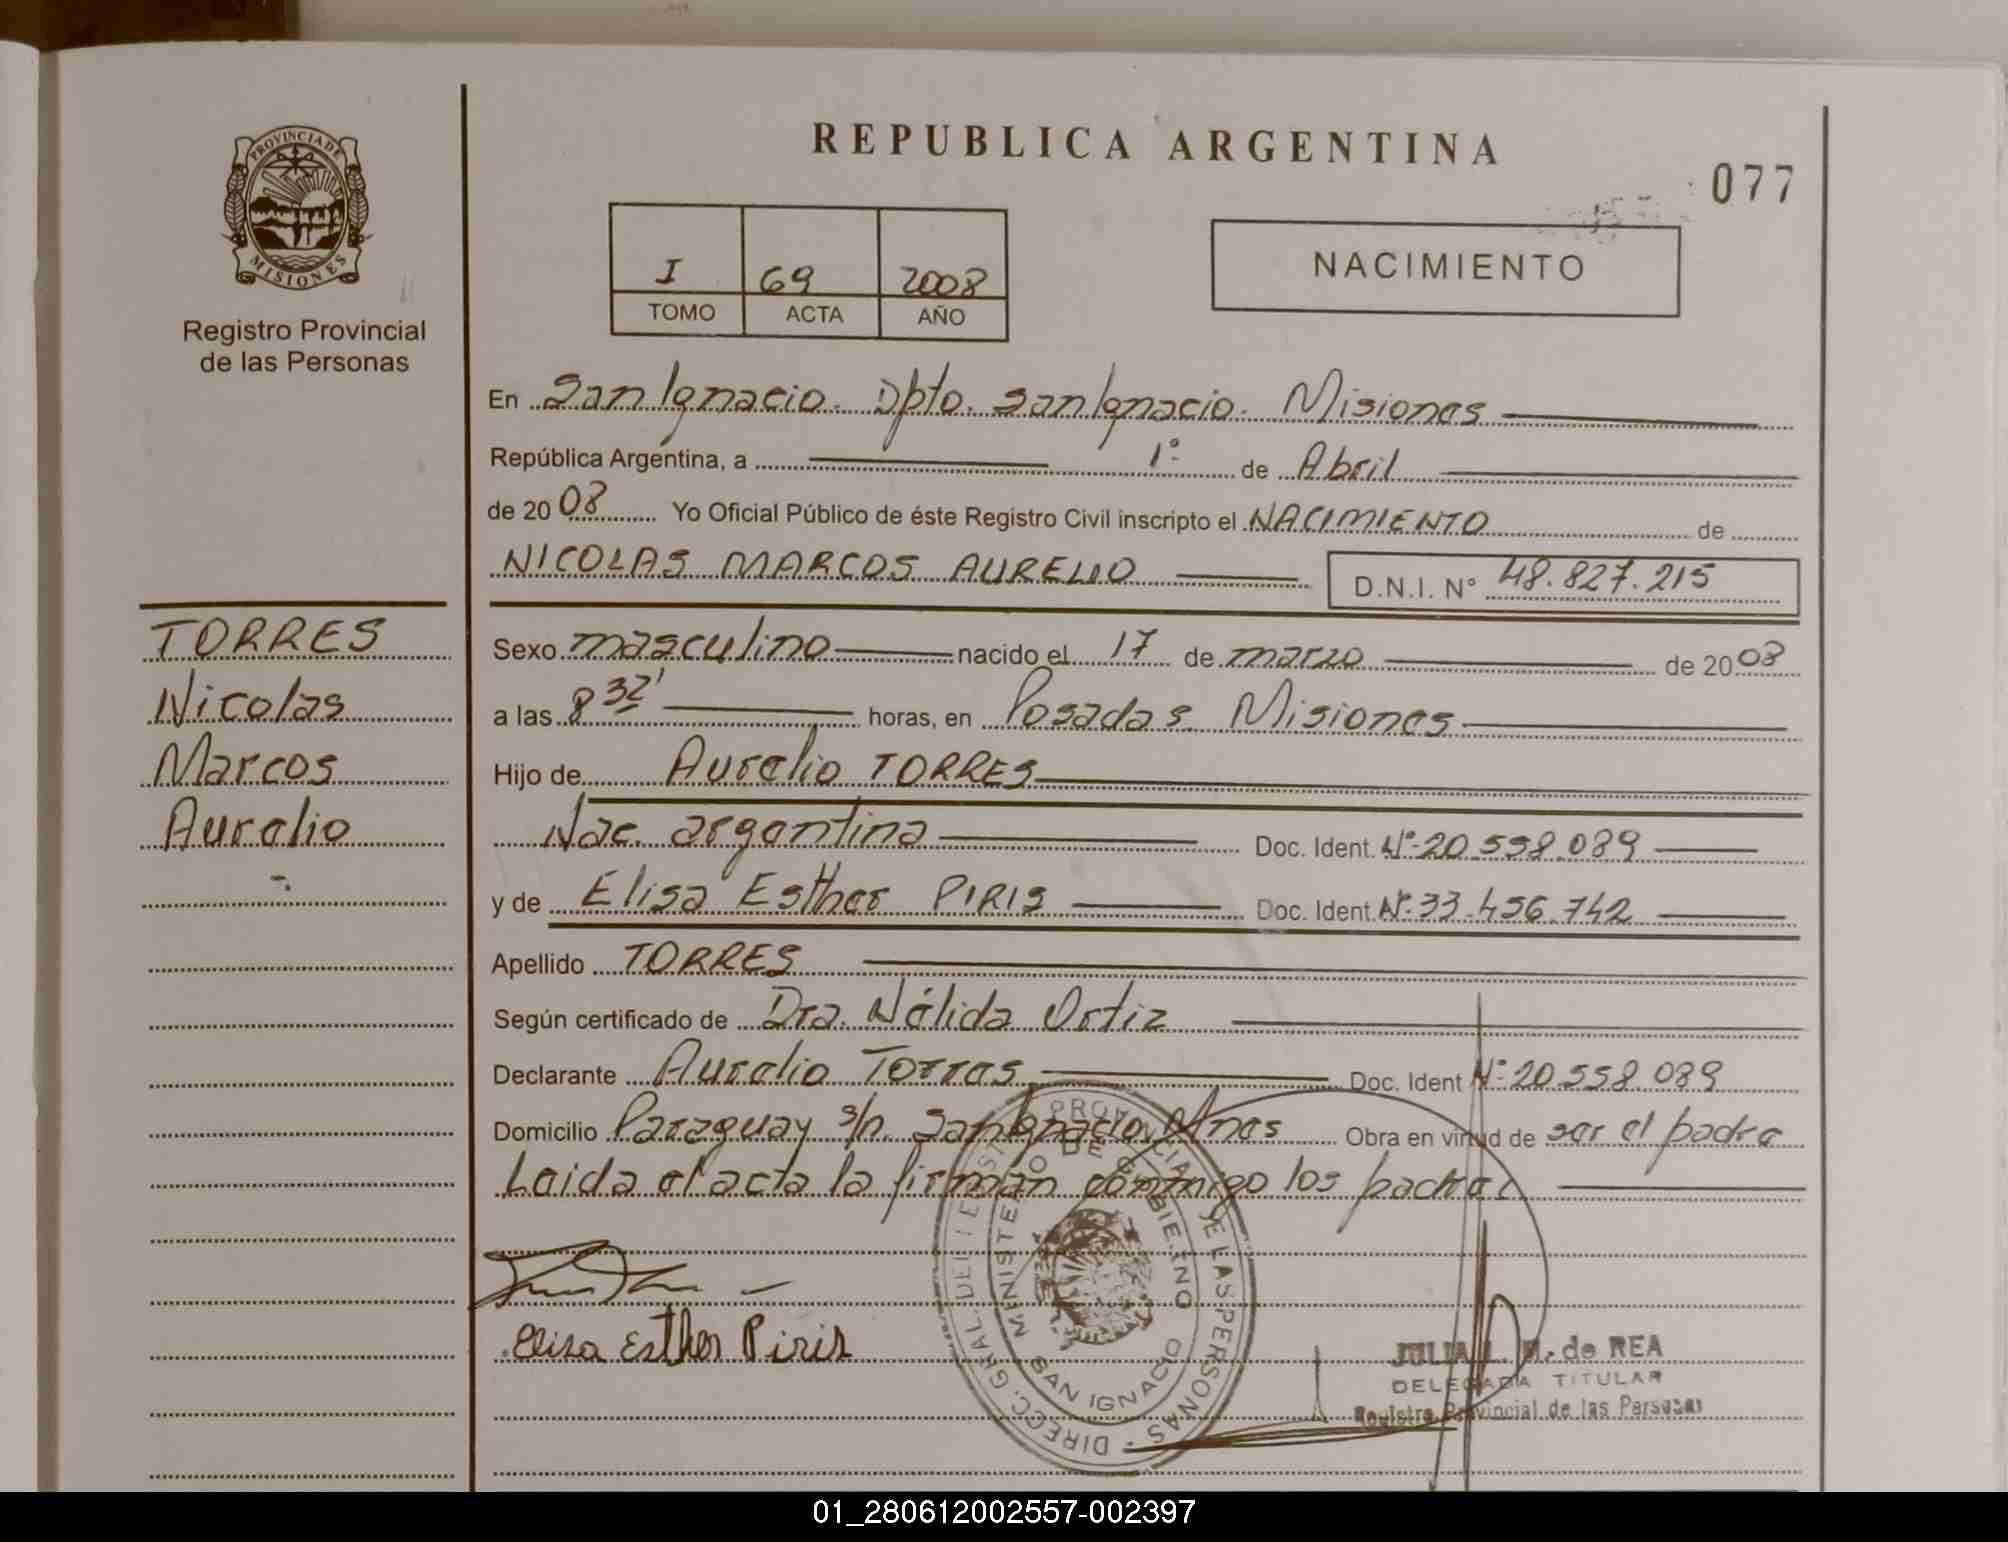 REPUBLICA ARGENTINA
077
PROVINCIA DE
MISIONES
Registro Provincial
de las Personas
I 69 2008
TOMO ACTA AÑO
NACIMIENTO
En San Ignacio. Dpto. San Ignacio. Misiones
República Argentina, a 1º de Abril
de 2008 Yo Oficial Público de éste Registro Civil inscripto el NACIMIENTO de
NICOLAS MARCOS AURELIO D.N.I. Nº 48.827.215
TORRES
Nicolas
Marcos
Aurelio
Sexo masculino nacido el 17 de marzo de 2008
a las 8 32' horas, en Posadas Misiones
Hijo de Aurelio TORRES
Nac. argentina Doc. Ident. Nº 20.558.089
y de Elisa Esther PIRIS Doc. Ident. Nº 33.456.742
Apellido TORRES
Según certificado de Dra. Nélida Ortiz
Declarante Aurelio Torres Doc. Ident Nº 20.558.089
Domicilio Paraguay s/n. San Ignacio, Mnes Obra en virtud de ser el padre
Leida el acta la firman conmigo los padres
Elisa Esther Piris
DIRECC. GRAL. DEL REGISTRO PROVINCIAL DE LAS PERSONAS
MINISTERIO DE GOBIERNO
SAN IGNACIO
JULIA L. M. de REA
DELEGADA TITULAR
Registro Provincial de las Personas
01_280612002557-002397